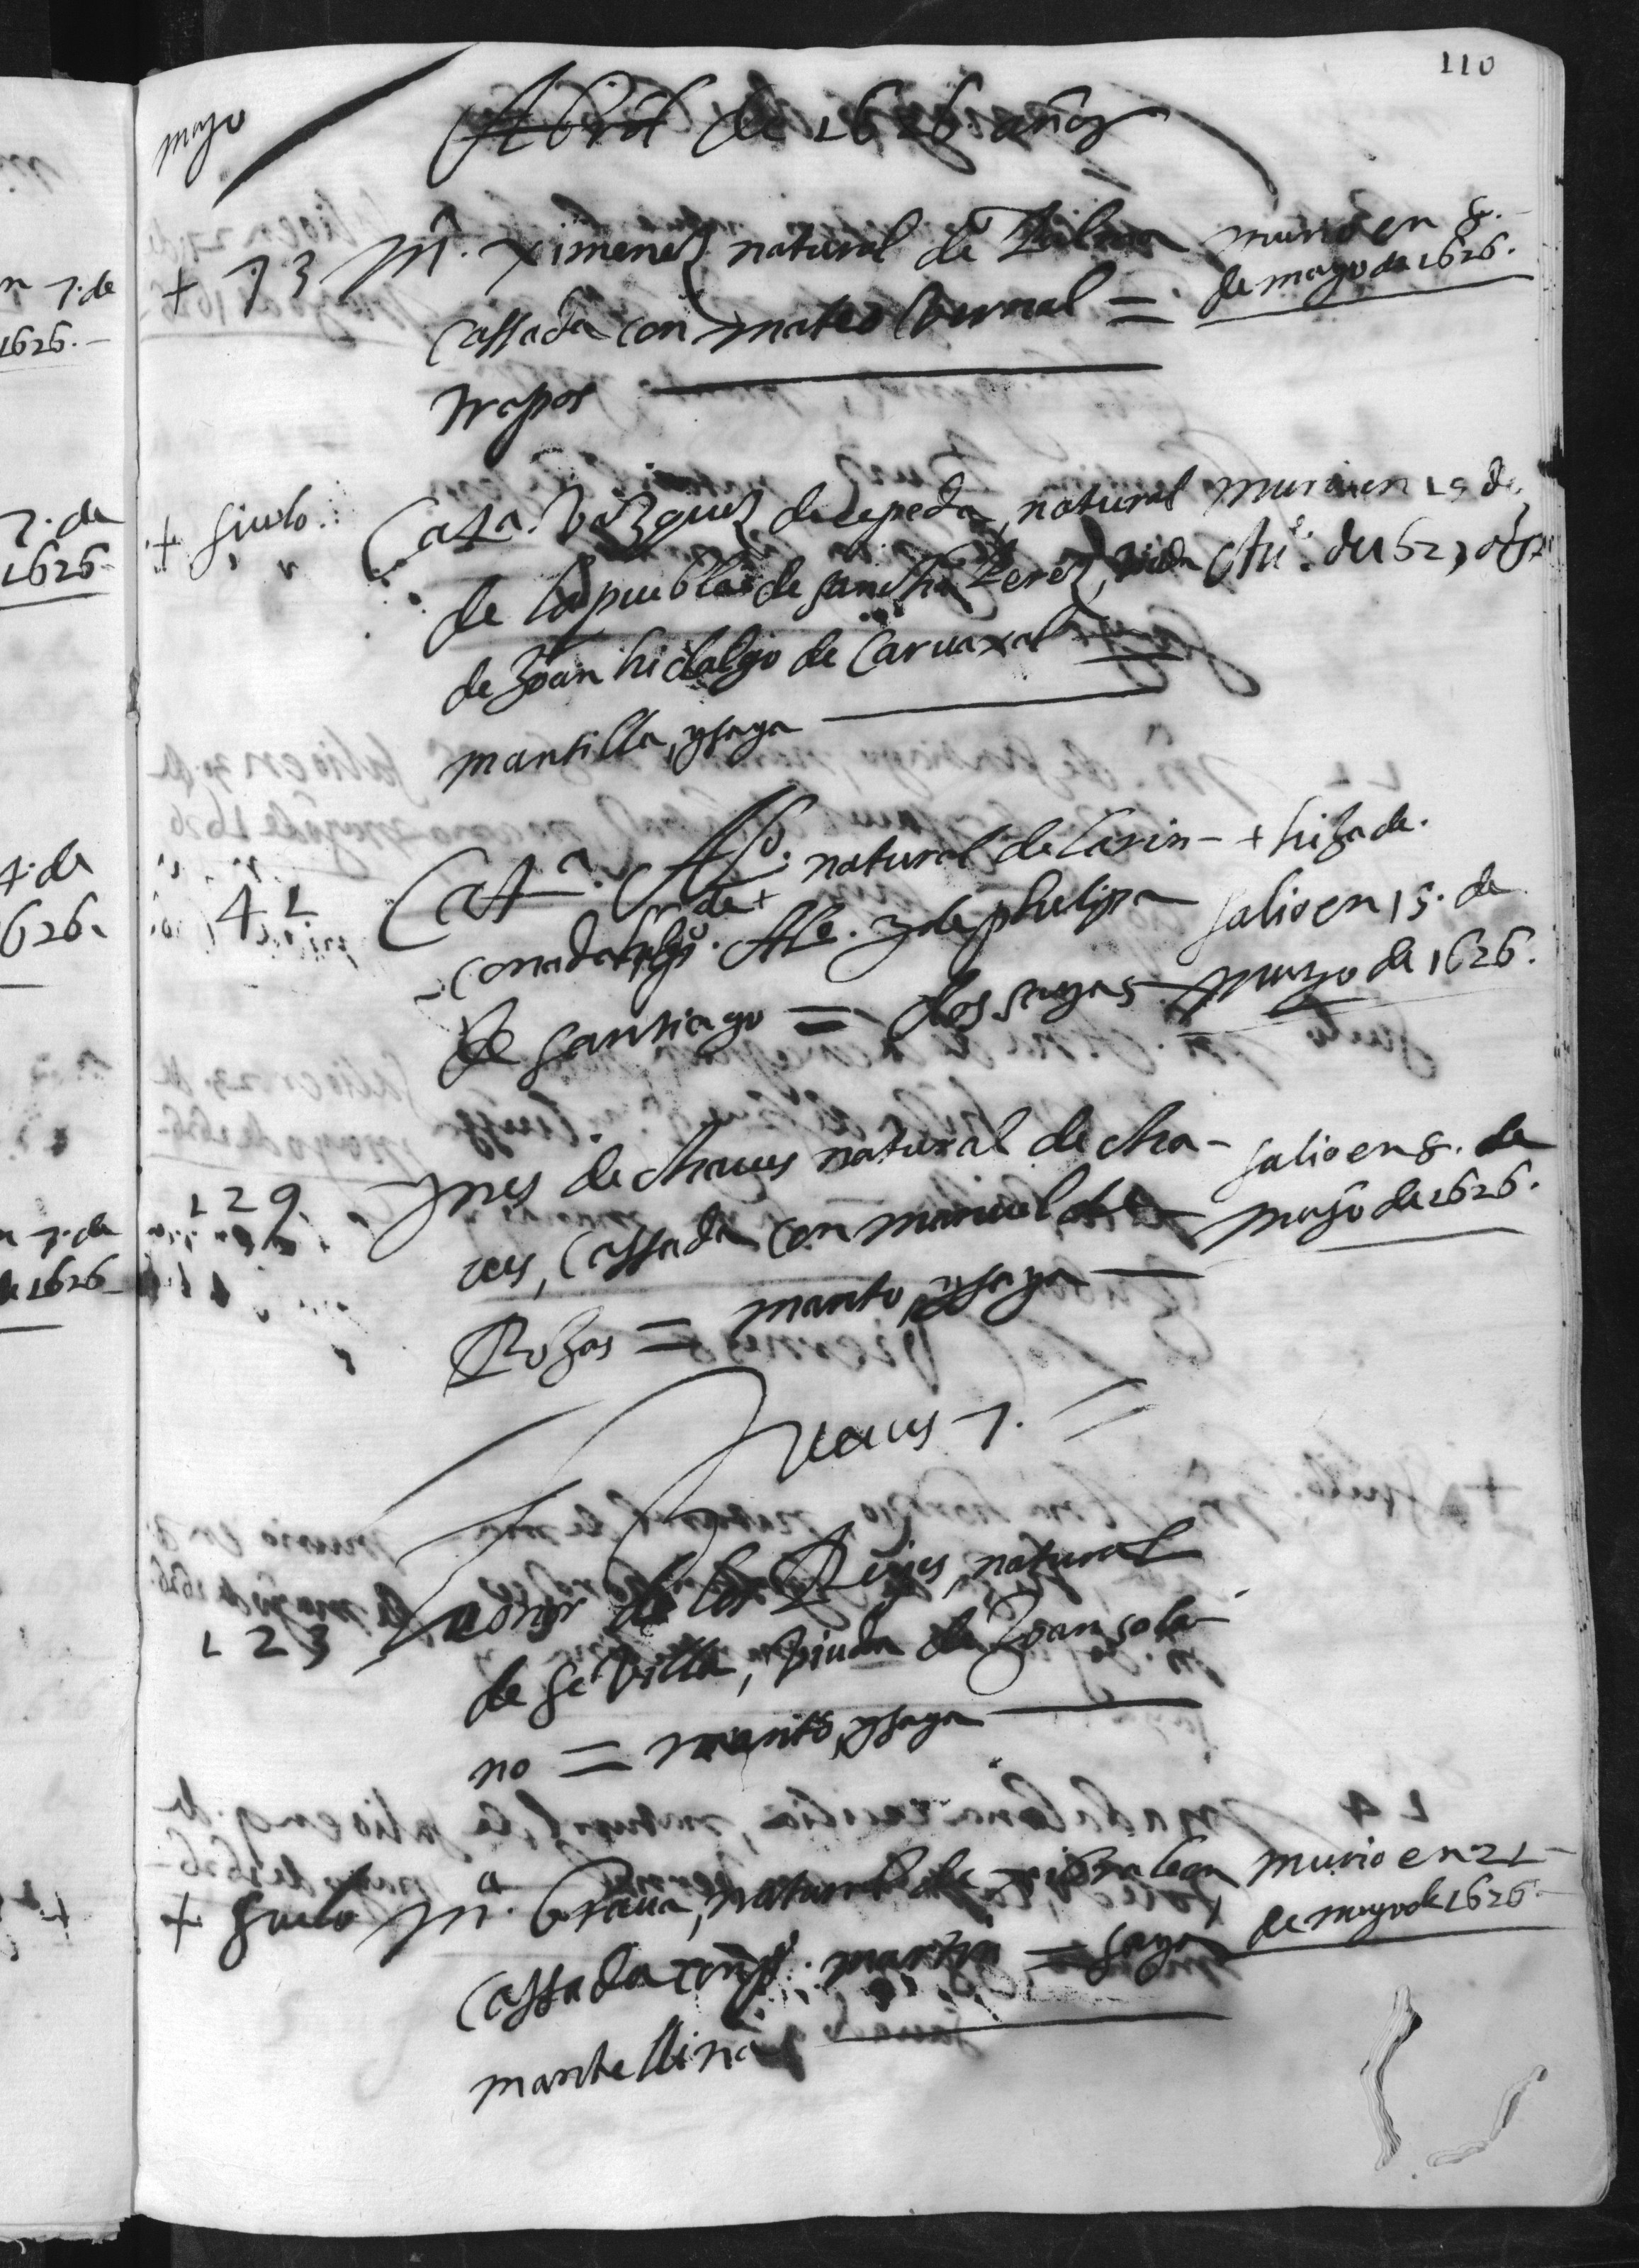 110
mayo
Abril de 1626 años
+ 73 Mª. ximenez natural de Palma murio en 8.
cassada con mateo bernal = de mayo de 1626.
trapos
+ suelo. Cata. Vazquez de cepeda, natural murio en 15 de
de la puebla de sancho Perez, viuda
de Joan hidalgo de Caruaxal
mantilla, y saya
41 Catª. Alº. natural de Carin- + hija de.
de Alº. y de phelipa salio en 15. de
de santiago = dos sayas mayo de 1626.
129 Ynes de chaues natural de cha- salio en 8. de
ues, cassada con manuel de mayo de 1626.
Rojas = manto, y saya
Jueues 7.
123 Leonor de los Reyes, natural
de seuilla, viuda de Joan sola-
no = manto, y saya
+ suelo Mª. braua, natural de gibraleon murio en 21
cassada con martin = saya de mayo de 1626
mantellina
n 7. de
1626.
7. de
1626
4. de
626.
n 7. de
de 1626